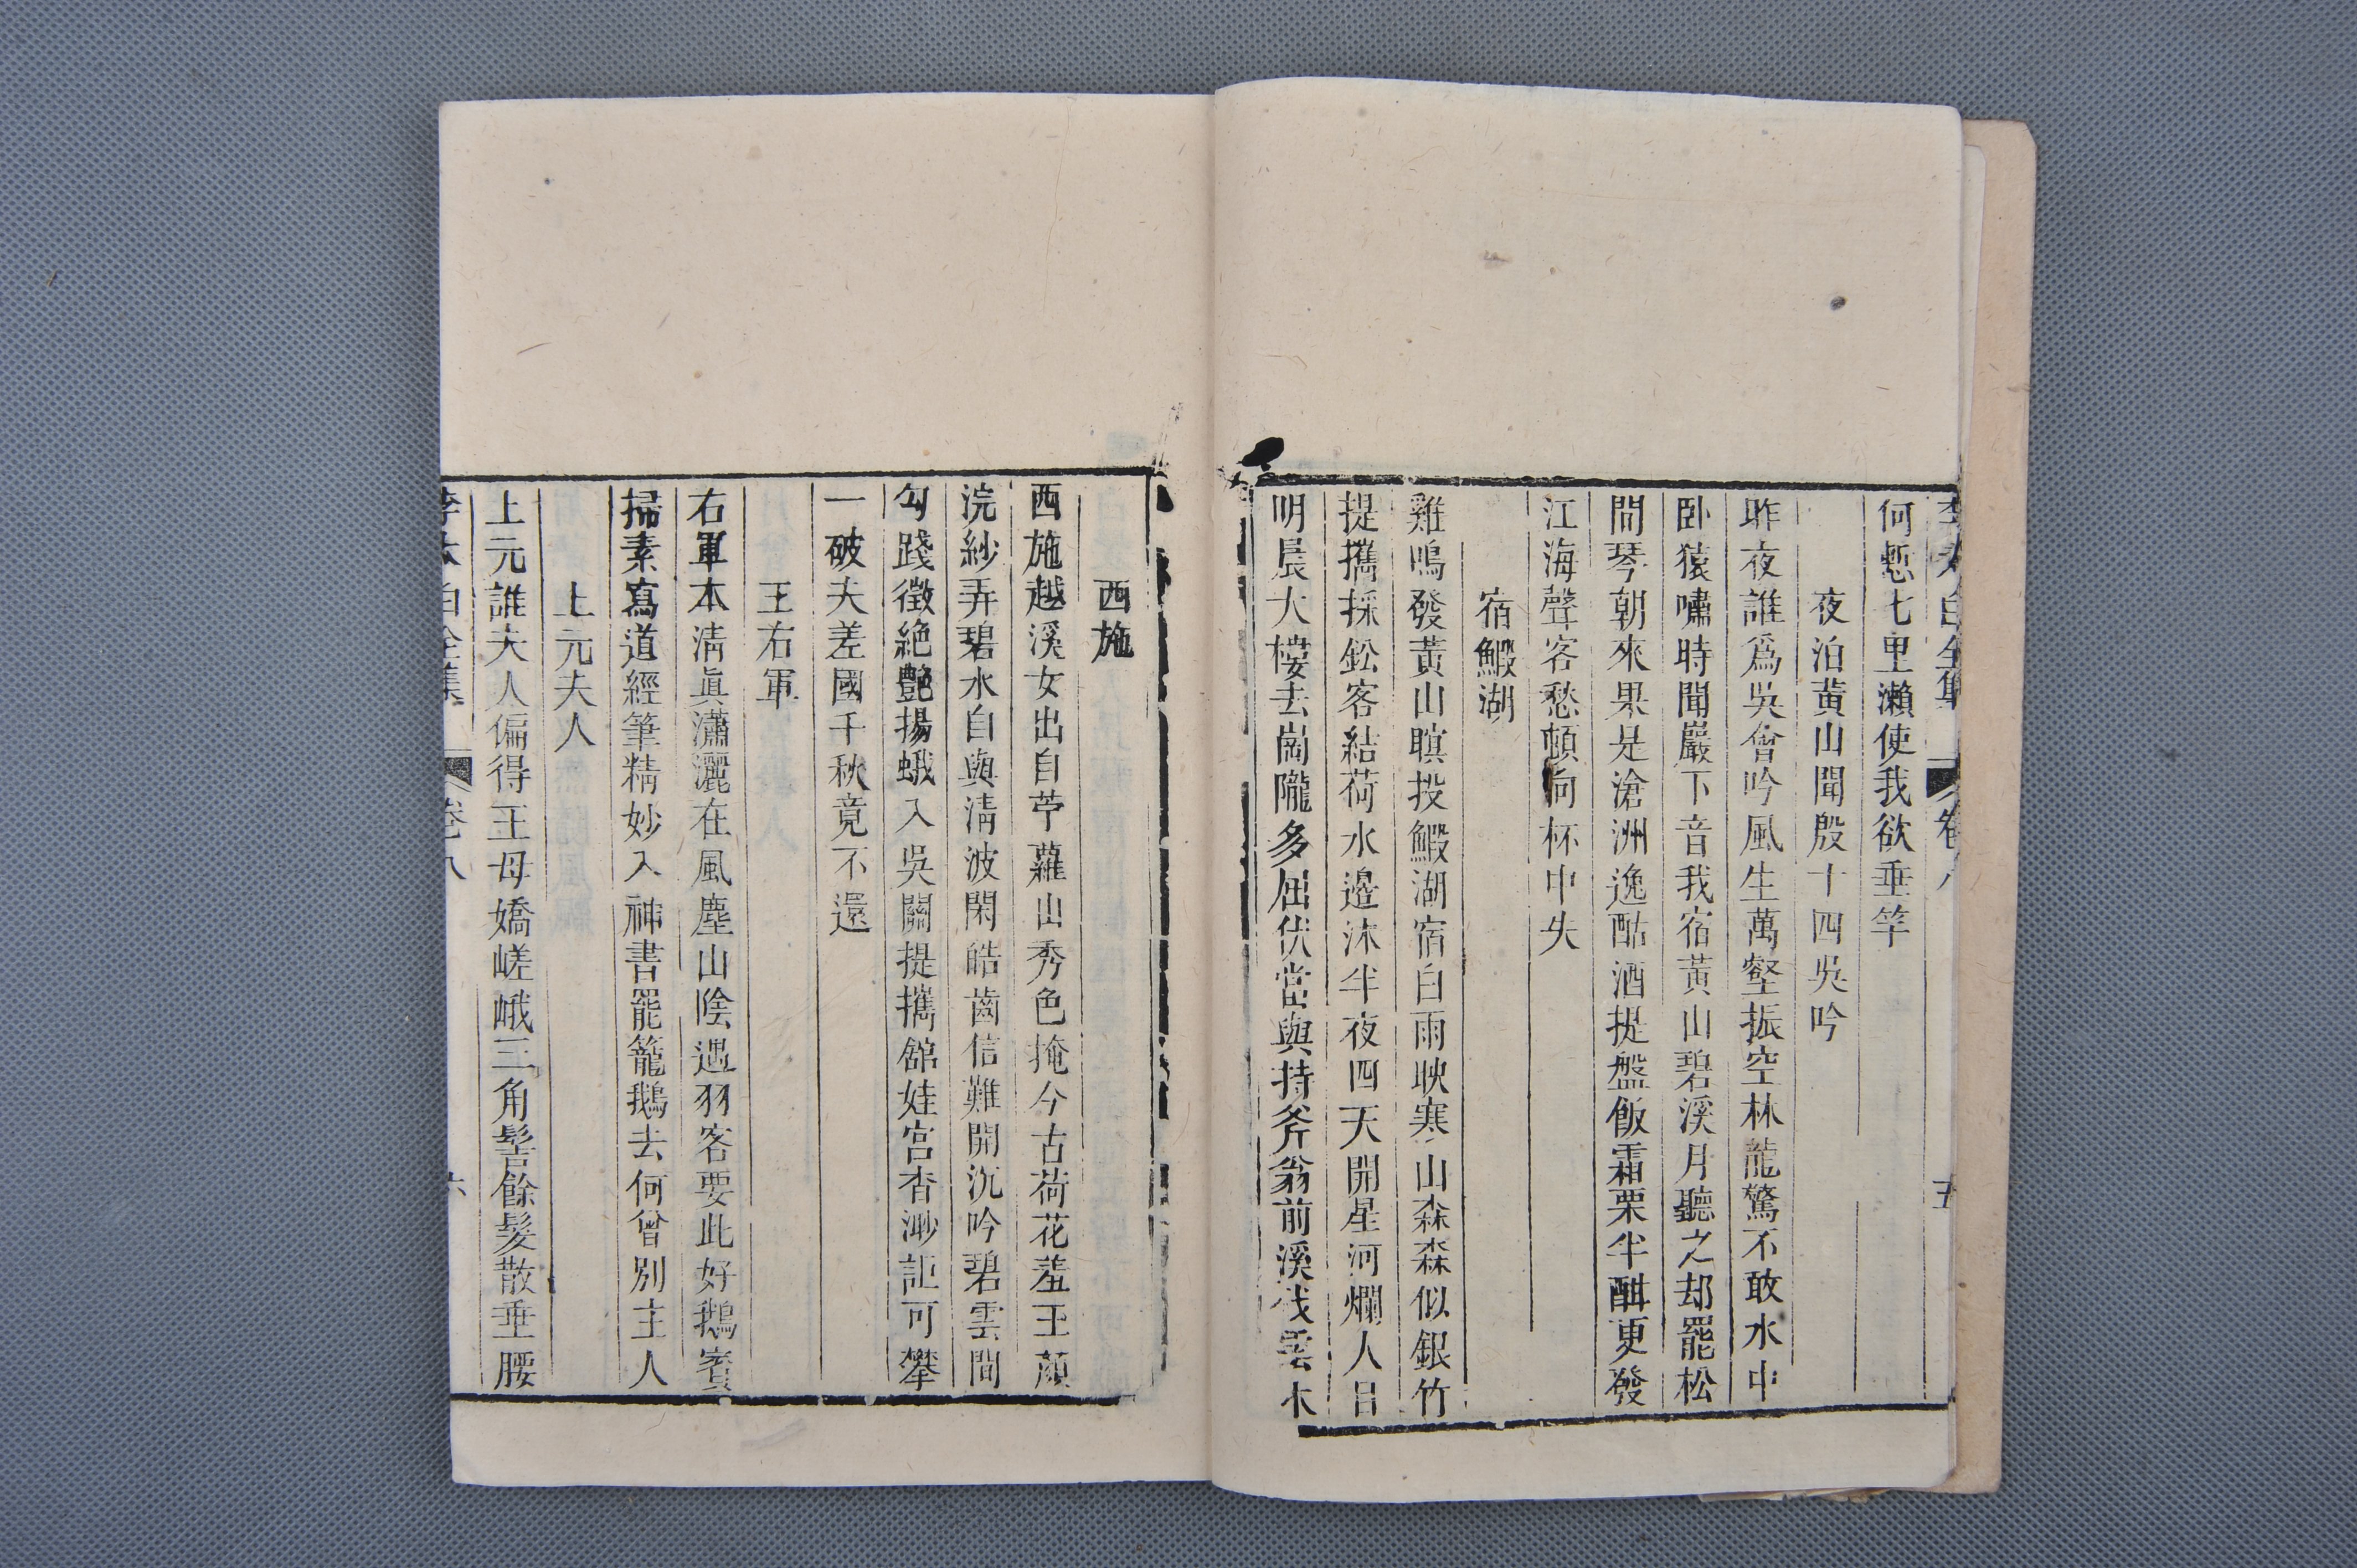 李太白全集 卷八 五
何慙七里瀨使我欲垂竿
夜泊黃山聞殷十四吳吟
昨夜誰爲吳會吟風生萬壑振空林龍驚不敢水中
卧猿嘯時聞巖下音我宿黃山碧溪月聽之却罷松
間琴朝來果是滄洲逸酤酒提盤飯霜栗半酣更發
江海聲客愁頓向杯中失
宿鰕湖
雞鳴發黃山暝投鰕湖宿白雨映寒山森森似銀竹
提攜採鈆客結荷水邊沐半夜四天開星河爛人目
明晨大樓去崗隴多屈伏當與持斧翁前溪伐雲木
西施
西施越溪女出自苧蘿山秀色掩今古荷花羞玉顏
浣紗弄碧水自與清波閑皓齒信難開沉吟碧雲間
勾踐徵絶艷揚蛾入吳關提攜舘娃宫杳渺詎可攀
一破夫差國千秋竟不還
王右軍
右軍本清眞瀟灑在風塵山陰遇羽客要此好鵝賓
掃素寫道經筆精妙入神書罷籠鵝去何曾別主人
上元夫人
上元誰夫人偏得王母嬌嵯峨三角髻餘髮散垂腰
李太白全集 卷八 六